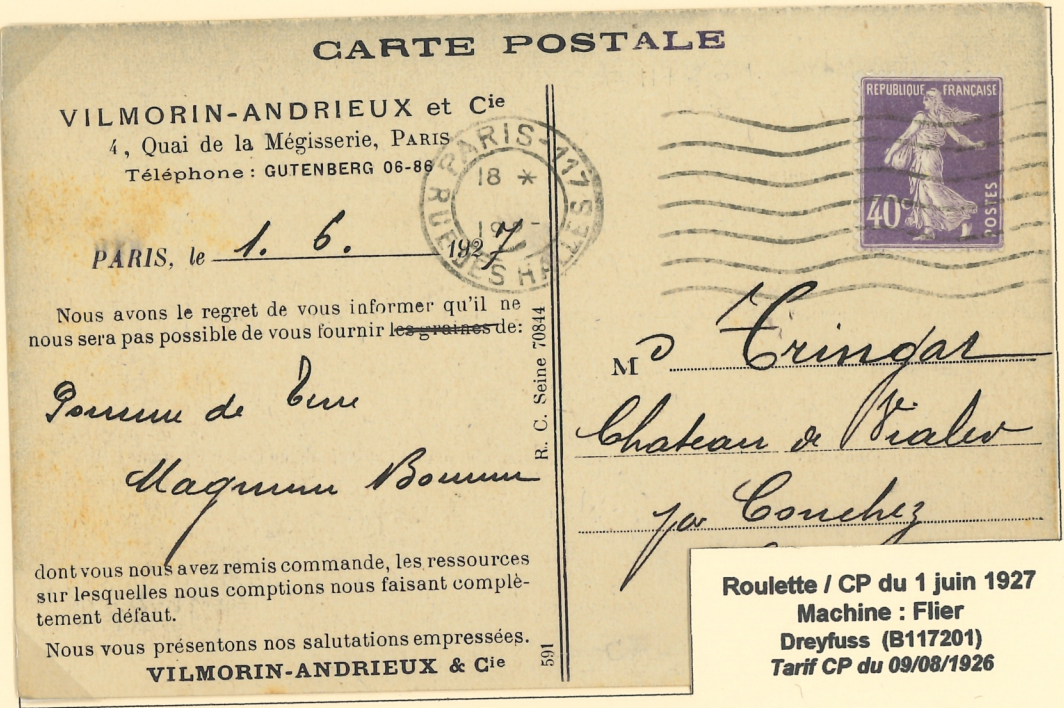 CARTE POSTALE
VILMORIN-ANDRIEUX et Cie
4, Quai de la Mégisserie, PARIS
Téléphone : GUTENBERG 06-86
PARIS, le 1. 6. 1927
Nous avons le regret de vous informer qu'il ne
nous sera pas possible de vous fournir les graines de:
Pomme de Terre
Magnum Bonum
dont vous nous avez remis commande, les ressources
sur lesquelles nous comptions nous faisant complè-
tement défaut.
Nous vous présentons nos salutations empressées.
VILMORIN-ANDRIEUX & Cie
R. C. Seine 70844
591
PARIS-117
18 *
RUE DES HALLES
REPUBLIQUE FRANÇAISE
40c
POSTES
M
Chateau de
par Conchez
Roulette / CP du 1 juin 1927
Machine : Flier
Dreyfuss (B117201)
Tarif CP du 09/08/1926